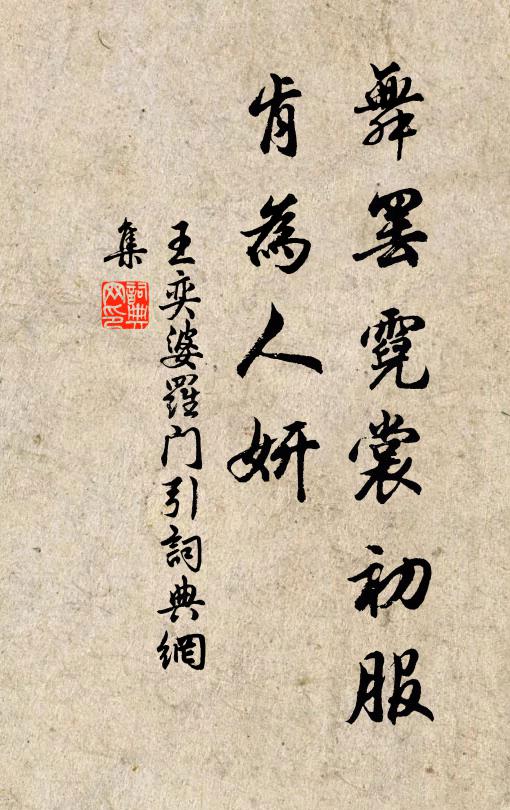 舞罷霓裳初服
肯為人妍
王奕婆羅门引詞典網
集
詞典
网印